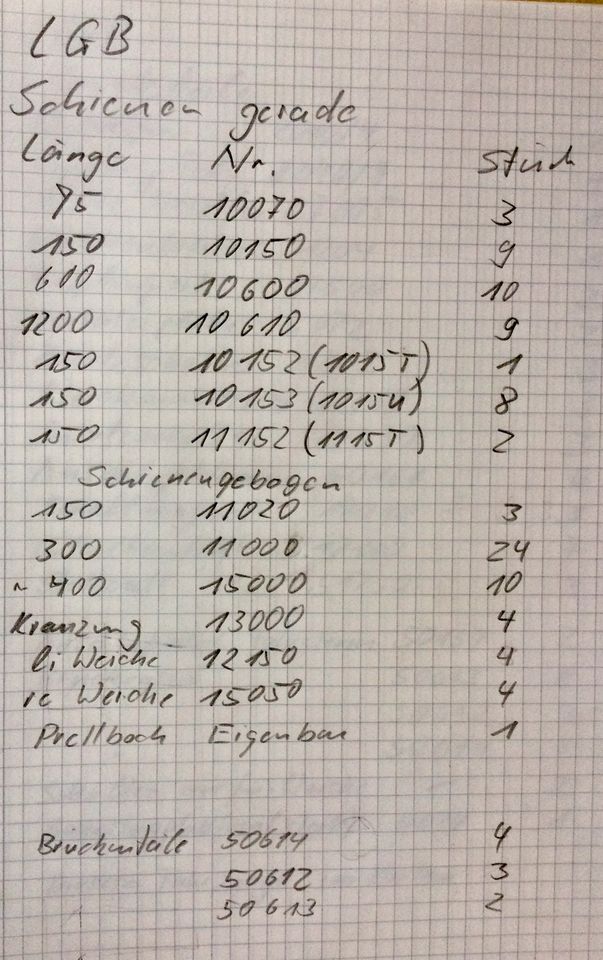 LGB
Schienen gerade
Länge Nr. Stück
75 10070 3
150 10150 9
600 10600 10
1200 10610 9
150 10152 (1015T) 1
150 10153 (1015U) 8
150 11152 (1115T) 2
Schienengebogen
150 11020 3
300 11000 24
~ 400 15000 10
Kranzung 13000 4
li Weiche 12150 4
re Weiche 15050 4
Prellbock Eigenbau 1
Brückenteile 50614 4
50612 3
50613 2